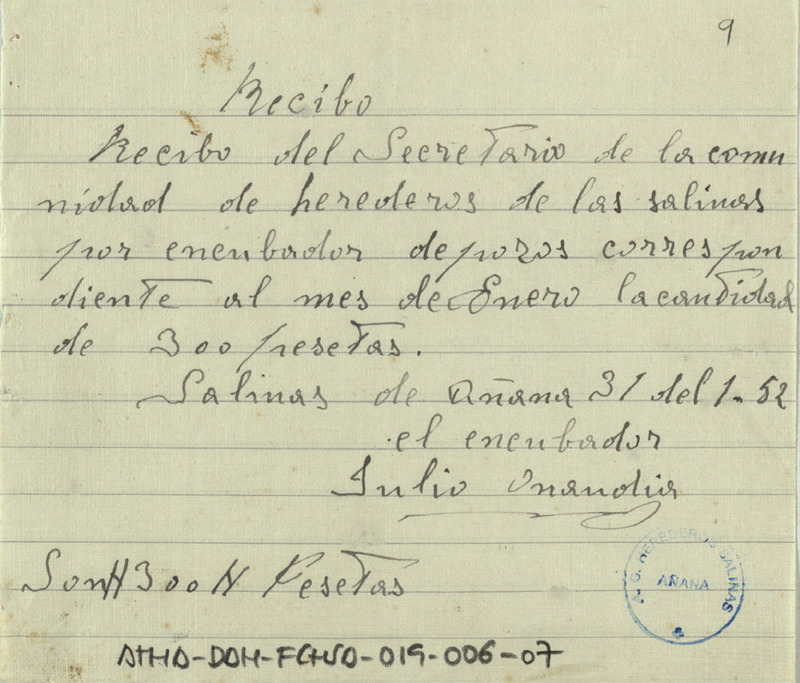 9
Recibo
Recibo del Secretario de la comu
nidad de herederos de las salinas
por encubador de pozos correspon
diente al mes de Enero la cantidad
de 300 pesetas.
Salinas de Añana 31 del 1-52
el encubador
Julio Onandia
Son # 300 # Pesetas
HEREDEROS SALINAS
AÑANA
ATHA-DAH-FCHSA-019-006-07